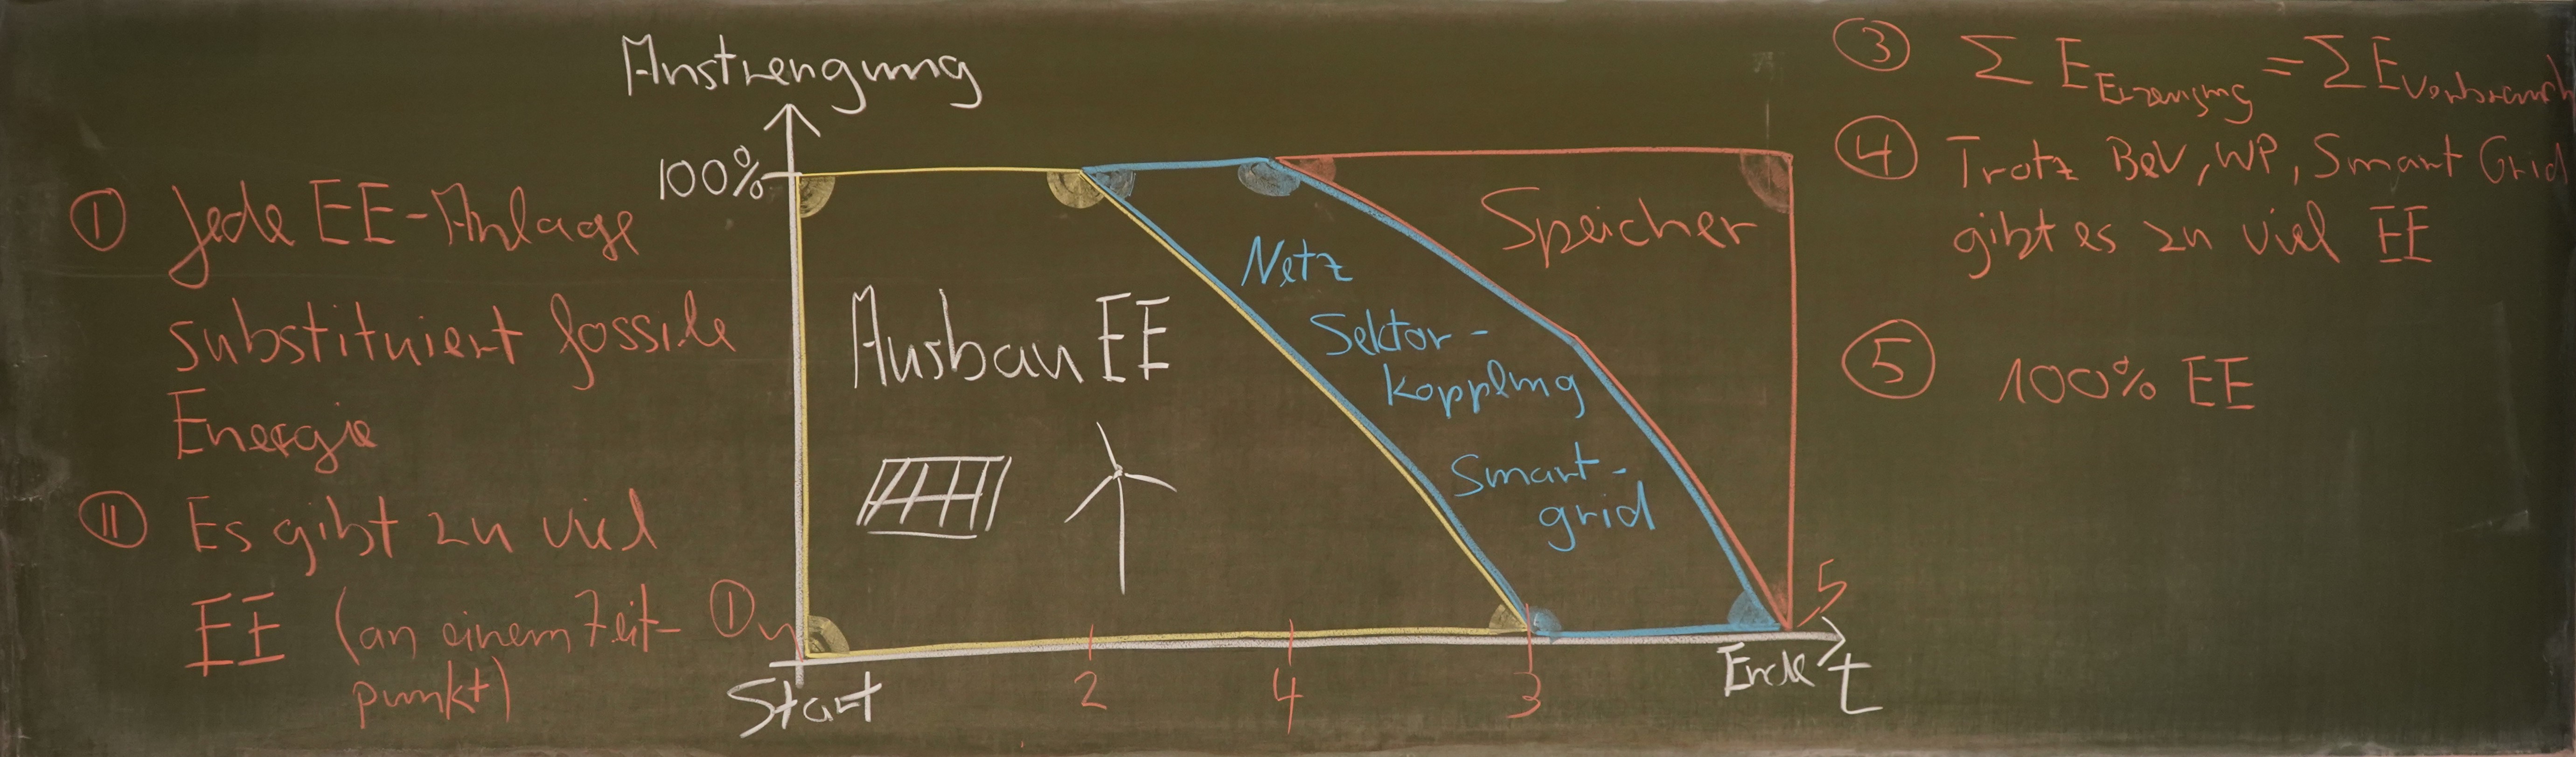 ① Jede EE-Anlage
substituiert fossile
Energie
② Es gibt zu viel
EE (an einem Zeit-
punkt)
Anstrengung
100%
Ausbau EE
Netz
Sektor-
kopplung
Smart-
grid
Speicher
①
Start
2
4
3
Ende
t
5
③ Σ E Erzeugung = Σ E Verbrauch
④ Trotz BeV, WP, Smart Grid
gibt es zu viel EE
⑤ 100% EE